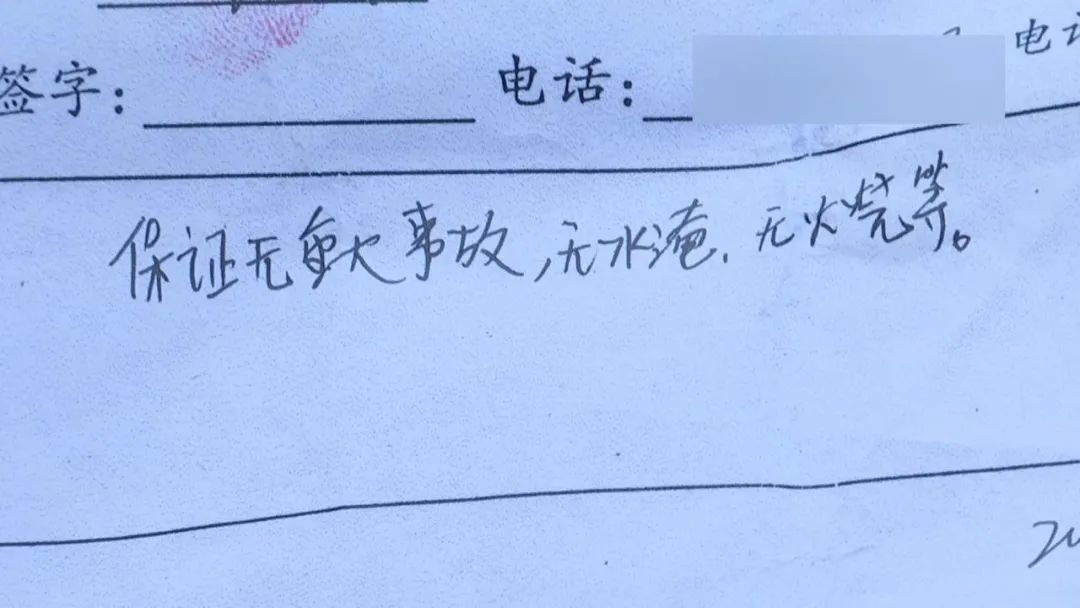 电话
签字： 电话：
保证无重大事故,无水淹.无火烧等。